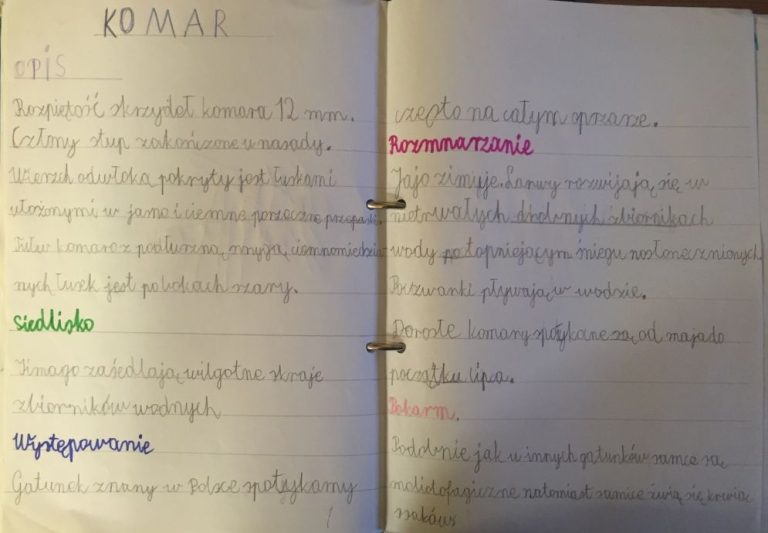 KOMAR
OPIS
Rozpiętość skrzydeł komara 12 mm.
Człony stup zakończone u nasady.
Wierzch odwłoka pokryty jest łuskami
ułożonymi w jasne i ciemne poprzeczne przepaski.
Tułów komara z podłużną smugą ciemnomiedzia
nych łusek jest po bokach szary.
Siedlisko
Imago zasiedlają wilgotne skraje
zbiorników wodnych
Występowanie
Gatunek znany w Polsce spotykamy
często na całym oprzaze.
Rozmnarzanie
Jajo zimuje. Larwy rozwijają się w
nietrwałych drobnych zbiornikach
wody po topniejącym śniegu nasłonecznionych
Poczwarki pływają w wodzie.
Dorosłe komary spotykane są od maja do
początku lipca.
Pokarm.
Podobnie jak u innych gatunków samce są
melidofagiczne natomiast samice żywią się krwią
ssaków